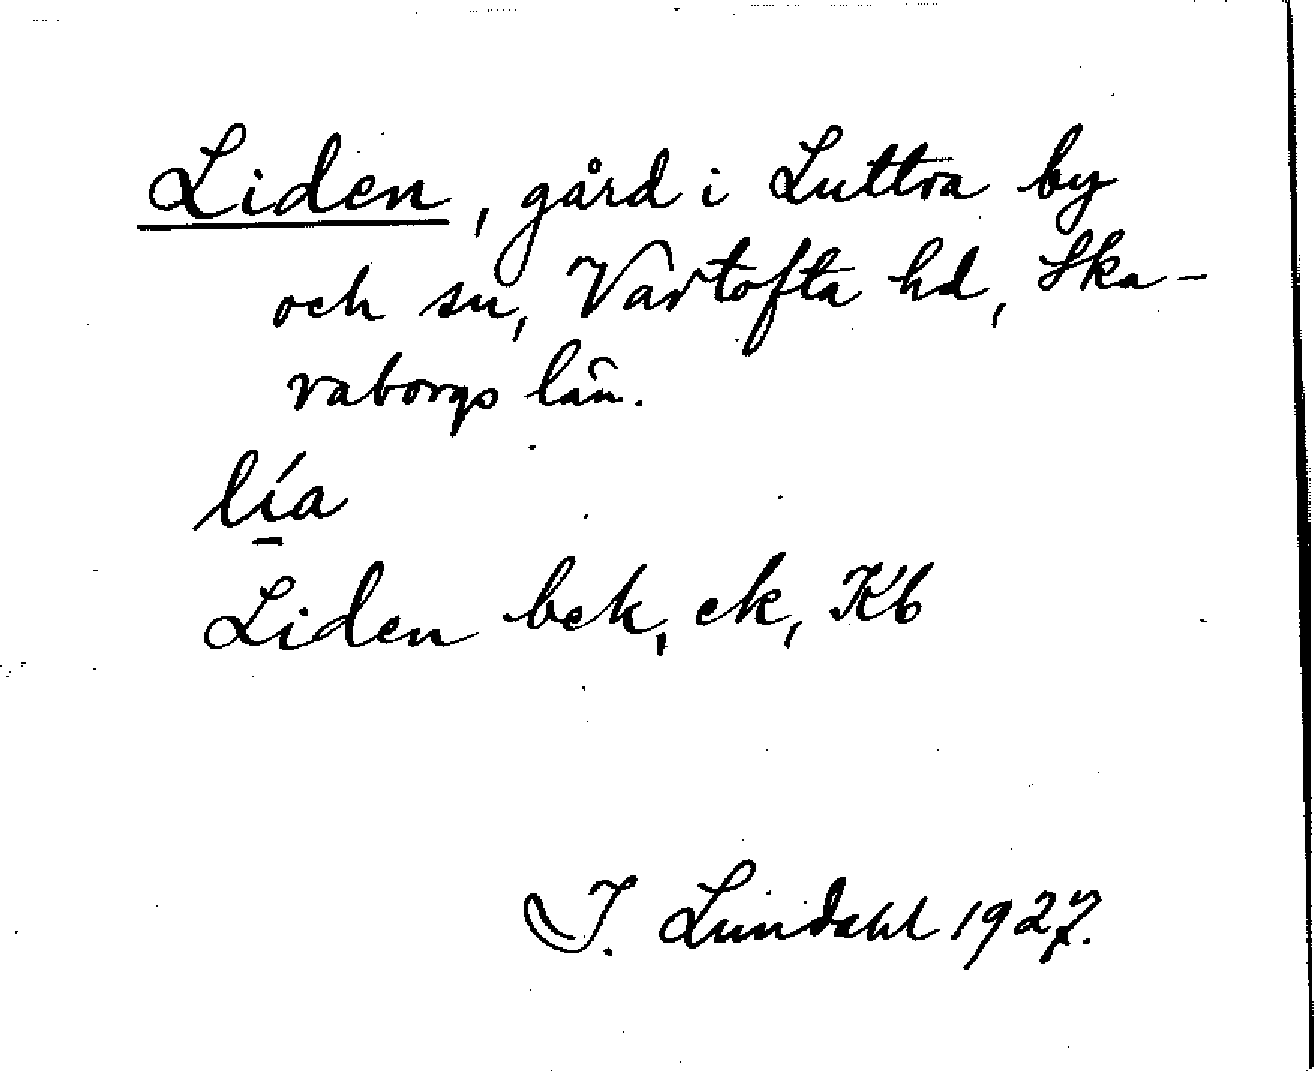 Liden, gård i Luttra by
och sn, Vartofta hd, Ska-
raborgs län.
lí̱a
Liden bek, ek, Kb
I. Lundahl 1927.